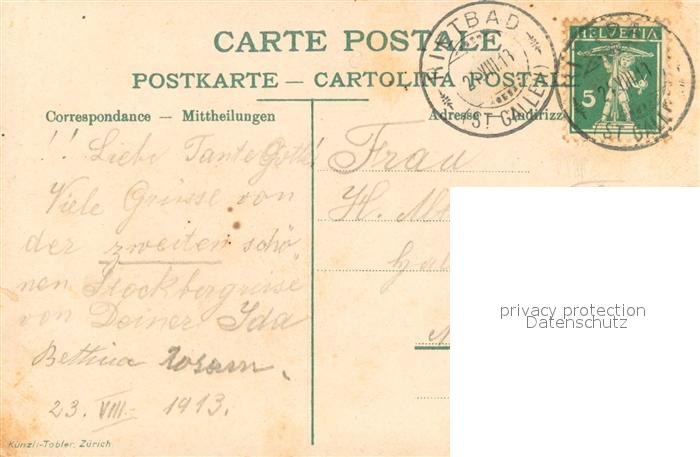 CARTE POSTALE
POSTKARTE — CARTOLINA POSTALE
Correspondance — Mittheilungen
Adresse Indirizzo
RIETBAD
24.VIII.13
(ST GALLEN)
HELVETIA
5
!! Liebe Tante Gotte!
Viele Grüsse von
der zweiten schö-
nen Stockbergreise
von Deiner Ida
Bettina
23. VIII. 1913.
Frau
H.
privacy protection
Datenschutz
Künzli-Tobler, Zürich